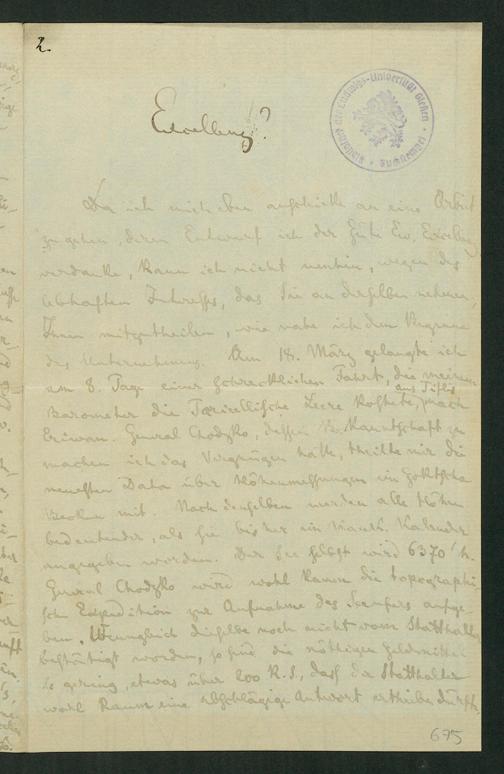 2.
Excellenz!
Da ich mich eben anschickte an eine Arbeit
zu gehen, deren Entwurf ich der Güte Ew. Excellenz
verdanke, kann ich nicht umhin, wegen des
lebhaften Interesses, das Sie an derselben nehmen,
Ihnen mitzutheilen, wie nahe ich dem Beginne
des Unternehmens. Am 18. März gelangte ich
am 8. Tage einer schrecklichen Fahrt, die meinem
aus Tiflis
Barometer die Toricellische Leere kostete, nach
Eriwan. General Chodzko, dessen Bekanntschaft zu
machen ich das Vergnügen hatte, theilte mir die
neuesten Data über Höhenmessungen im Goktscha
Becken mit. Nach denselben werden alle Höhen
bedeutender, als sie bisher im Kauk. Kalender
angegeben worden. Der See selbst wird 6370' h.
General Chodzko wird wohl kaum die topographi-
sche Expedition zur Aufnahme des Seeufers aufge-
ben. Wenngleich dieselbe noch nicht vom Statthalter
bestätigt worden, so sind die nöthigen Geldmittel
so gering, etwas über 200 R.S., dass der Statthalter
wohl kaum eine abschlägige Antwort ertheilen dürfte,
675